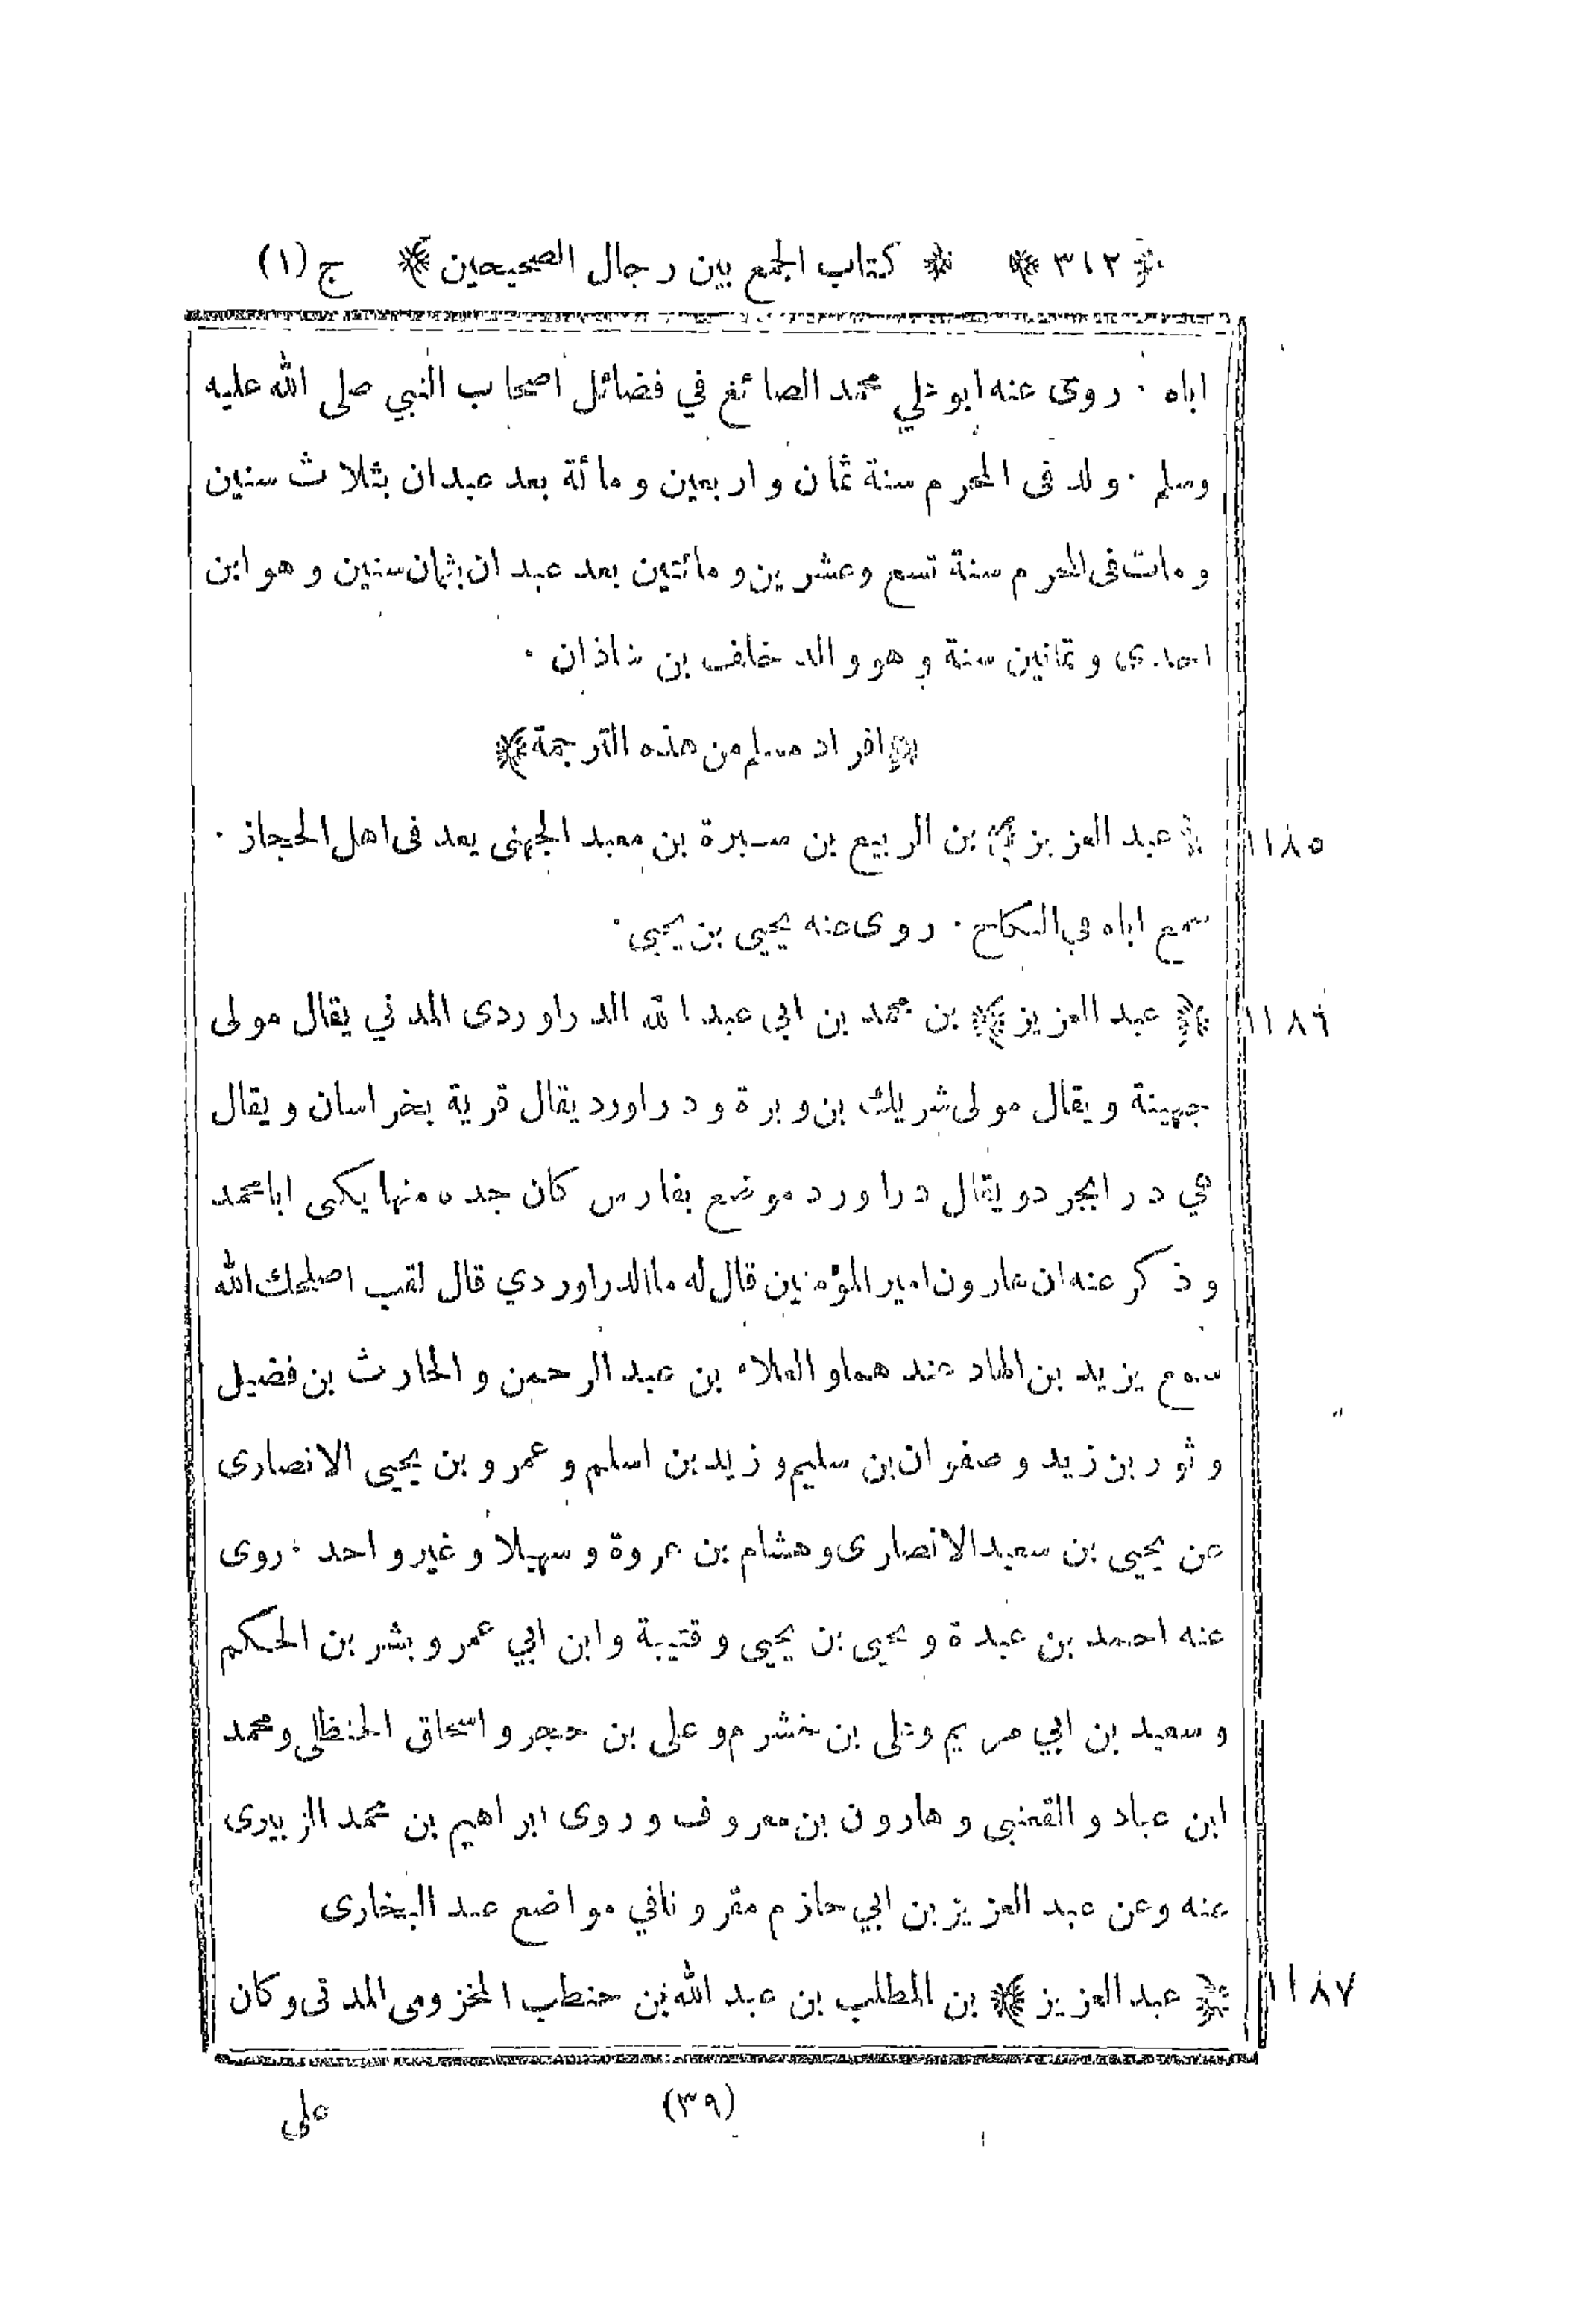 ﴿ ٣١٢ ﴾ ﴿ كتاب الجمع بين رجال الصحيحين ﴾ ج (١)
اباه · روى عنه ابو علي محمد الصائغ في فضائل اصحاب النبي صلى الله عليه
وسلم · ولد فى المحرم سنة ثمان و اربعين و مائة بعد عبدان بثلاث سنين
و مات فى المحرم سنة تسع وعشرين و مائتين بعد عبدان بثمان سنين و هو ابن
احدى و ثمانين سنة و هو والد خلف بن شاذان ·
﴿ افراد مسلم من هذه الترجمة ﴾
١١٨٥ ﴿ عبد العزيز ﴾ بن الربيع بن سبرة بن معبد الجهنى يعد فى اهل الحجاز ·
سمع اباه في النكاح · روى عنه يحيى بن يحيى ·
١١٨٦ ﴿ عبد العزيز ﴾ بن محمد بن ابى عبد الله الدراوردى المدني يقال مولى
جهينة و يقال مولى شريك بن وبرة و دراورد يقال قرية بخراسان و يقال
هي درابجرد و يقال دراورد موضع بفارس كان جده منها يكنى ابا محمد
و ذكر عنه ان هارون امير المؤمنين قال له ما الدراوردي قال لقب اصلحك الله
سمع يزيد بن الهاد عندهما و العلاء بن عبد الرحمن و الحارث بن فضيل
و ثور بن زيد و صفوان بن سليم و زيد بن اسلم و عمرو بن يحيى الانصارى
عن يحيى بن سعيد الانصارى و هشام بن عروة و سهيلا و غير واحد · روى
عنه احمد بن عبدة و يحيى بن يحيى و قتيبة و ابن ابي عمر و بشر بن الحكم
و سعيد بن ابي مريم و على بن خشرم و على بن حجر و اسحاق الحنظلى و محمد
ابن عباد و القعنبى و هارون بن معروف و روى ابراهيم بن محمد الزبيرى
عنه وعن عبد العزيز بن ابي حازم مقرونا في مواضع عند البخارى
١١٨٧ ﴿ عبد العزيز ﴾ بن المطلب بن عبد الله بن حنطب المخزومى المدنى و كان
(٣٩) على